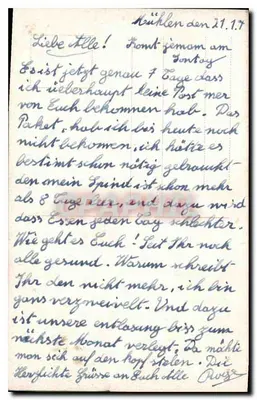 Mühlen den 21.1.7
Liebe Alle! Komt jemom am
Sontag
Es ist jetzt genau 7 Tage dass
ich üeberhaupt keine Post mer
von Euch bekommen hab. Das
Paket, hab ich bis heute noch
nicht bekomen, ich hätte es
bestimt schon nötig gebraucht
den mein Spind ist schon mehr
als 8 Tage leer, und dazu wird
dass Essen jeden Tag schlechter.
Wie geht es Euch! Seit Ihr noch
alle gesund. Warum schreibt
Ihr den nicht mehr, ich bin
gans verzweivelt. Und dazu
ist unsere entlasung biss zum
nächste Monat verlegt. Da mähte
man sich auf den Kopf stelen. Die
Herzlichte Grüsse an Euch Alle